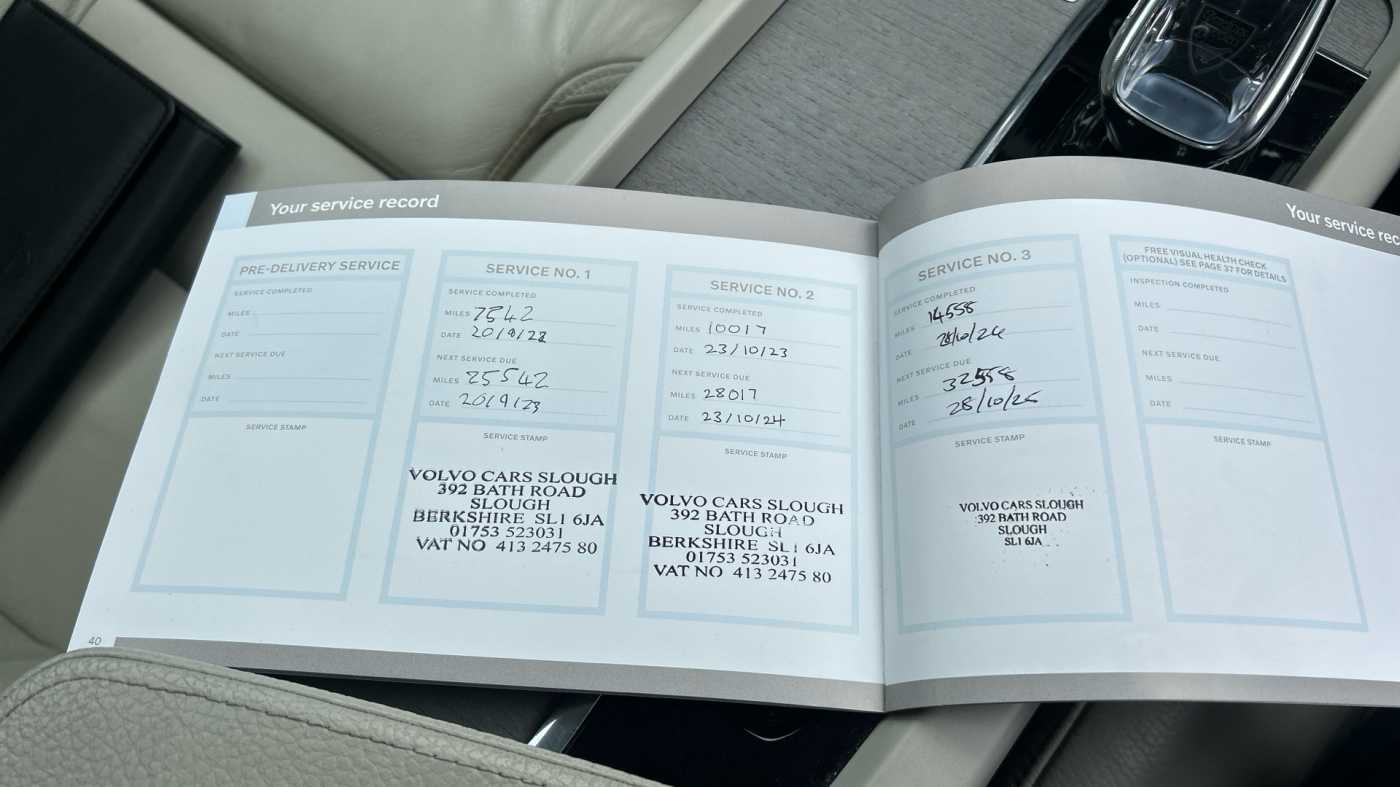 Your service record
PRE-DELIVERY SERVICE
SERVICE COMPLETED
MILES
DATE
NEXT SERVICE DUE
MILES
DATE
SERVICE STAMP
SERVICE NO. 1
SERVICE COMPLETED
MILES 7542
DATE 20/9/22
NEXT SERVICE DUE
MILES 25542
DATE 20/9/23
SERVICE STAMP
VOLVO CARS SLOUGH
392 BATH ROAD
SLOUGH
BERKSHIRE SL1 6JA
01753 523031
VAT NO 413 2475 80
SERVICE NO. 2
SERVICE COMPLETED
MILES 10017
DATE 23/10/23
NEXT SERVICE DUE
MILES 28017
DATE 23/10/24
SERVICE STAMP
VOLVO CARS SLOUGH
392 BATH ROAD
SLOUGH
BERKSHIRE SL1 6JA
01753 523031
VAT NO 413 2475 80
40
Your service rec
SERVICE NO. 3
SERVICE COMPLETED
MILES 14558
DATE 28/10/24
NEXT SERVICE DUE
MILES 32558
DATE 28/10/25
SERVICE STAMP
VOLVO CARS SLOUGH
392 BATH ROAD
SLOUGH
SL1 6JA
FREE VISUAL HEALTH CHECK
(OPTIONAL) SEE PAGE 37 FOR DETAILS
INSPECTION COMPLETED
MILES
DATE
NEXT SERVICE DUE
MILES
DATE
SERVICE STAMP